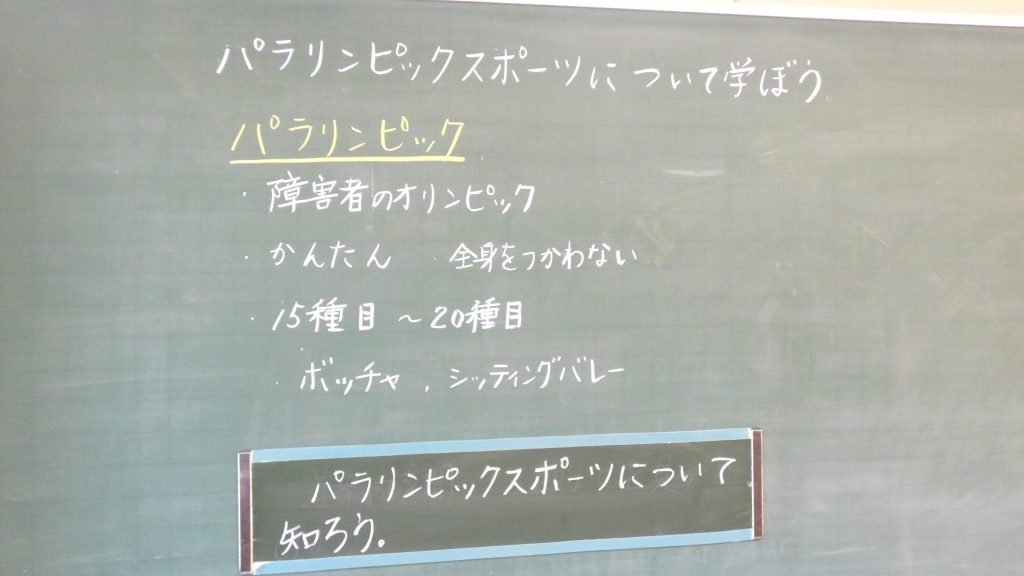 パラリンピックスポーツについて学ぼう
パラリンピック
・障害者のオリンピック
・かんたん ・全身をつかわない
・15種目〜20種目
・ボッチャ,シッティングバレー
パラリンピックスポーツについて
知ろう。